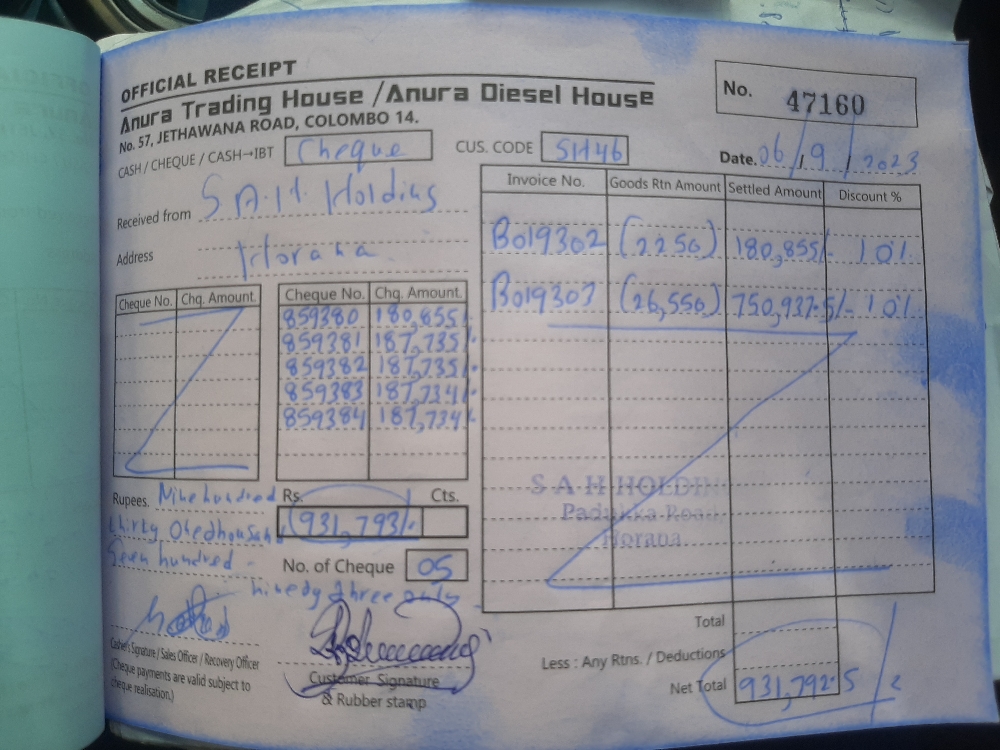 OFFICIAL RECEIPT
Anura Trading House /Anura Diesel House
No. 57, JETHAWANA ROAD, COLOMBO 14.
No. 47160
CASH / CHEQUE / CASH→IBT Cheque
CUS. CODE SH46
Date. 06/9/2023
Received from S.A.H. Holdings
Address Horana
Invoice No. Goods Rtn Amount Settled Amount Discount %
B019302 (2250) 180,855/- 10%
B019307 (26,550) 750,937.5/- 10%
Cheque No. Chq. Amount.
Cheque No. Chq. Amount.
859380 180,855/-
859381 187,735/-
859382 187,735/-
859383 187,734/-
859384 187,734/-
S A H HOLDIN
Padukka Road,
Horana.
Rupees. Nine hundred
thirty One thousand
Seven hundred
ninedy three only
Rs. Cts.
931,793/-
No. of Cheque 05
Cashier's Signature / Sales Officer / Recovery Officer
(Cheque payments are valid subject to
cheque realisation.)
Customer Signature
& Rubber stamp
Total
Less : Any Rtns. / Deductions
Net Total 931,792.5